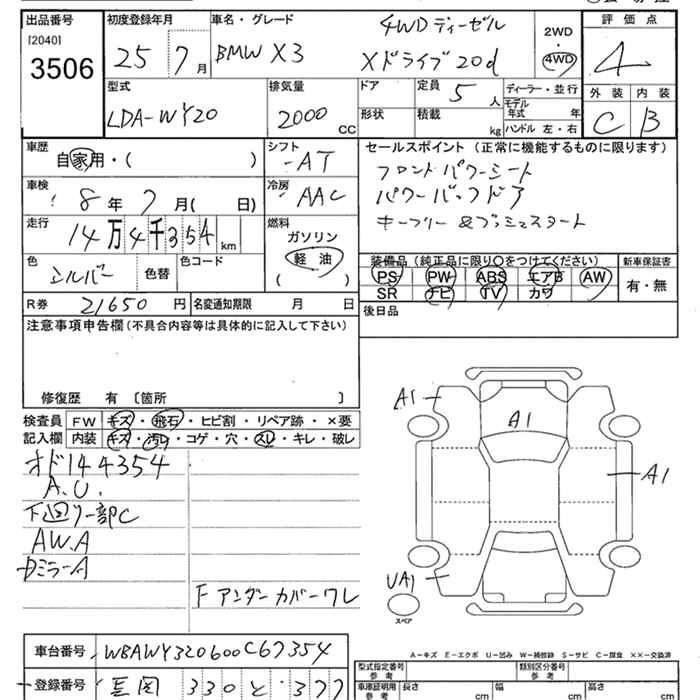 出品番号 初度登録年月 車名・グレード 評価点
[2040]
3506 25 7月 BMW X3 4WD ディーゼル 2WD 4
Xドライブ20d 4WD
型式 排気量 ドア 定員 5人 ディーラー・並行 外装 内装
LDA-WY20 2000CC 形状 積載 kg モデル年式 年 C B
ハンドル 左・右
車歴 自家用・( ) シフト AT セールスポイント (正常に機能するものに限ります)
フロントパワーシート
車検 8年 7月( 日) 冷房 AAC パワーバックドア
キーフリー&プッシュスタート
走行 14万4千354km 燃料 ガソリン
軽油
( )
色 シルバー 色替 色コード 装備品 (純正品に限り○をつけてください) 新車保証書
PS PW ABS エアB AW 有・無
SR ナビ TV カワ
R券 21650円 名変通知期限 月 日 後日品
注意事項申告欄 (不具合内容等は具体的に記入して下さい)
修復歴 有 〔箇所 〕
検査員 FW キズ・飛石・ヒビ割・リペア跡・×要
記入欄 内装 キズ・汚レ・コゲ・穴・スレ・キレ・破レ
A1
A1
オド144354
A1
A.U.
下廻り一部C
AW.A
UA1
スペア
Fアンダーカバーワレ
A=キズ E=エクボ U=凹み W=補修跡 S=サビ C=腐食 ××=交換済
車台番号 WBAWY320600C67354
型式指定番号 参考 類別区分番号 参考
登録番号 330 と 377
車庫証明用 参考 長さ cm 幅 cm 高さ cm